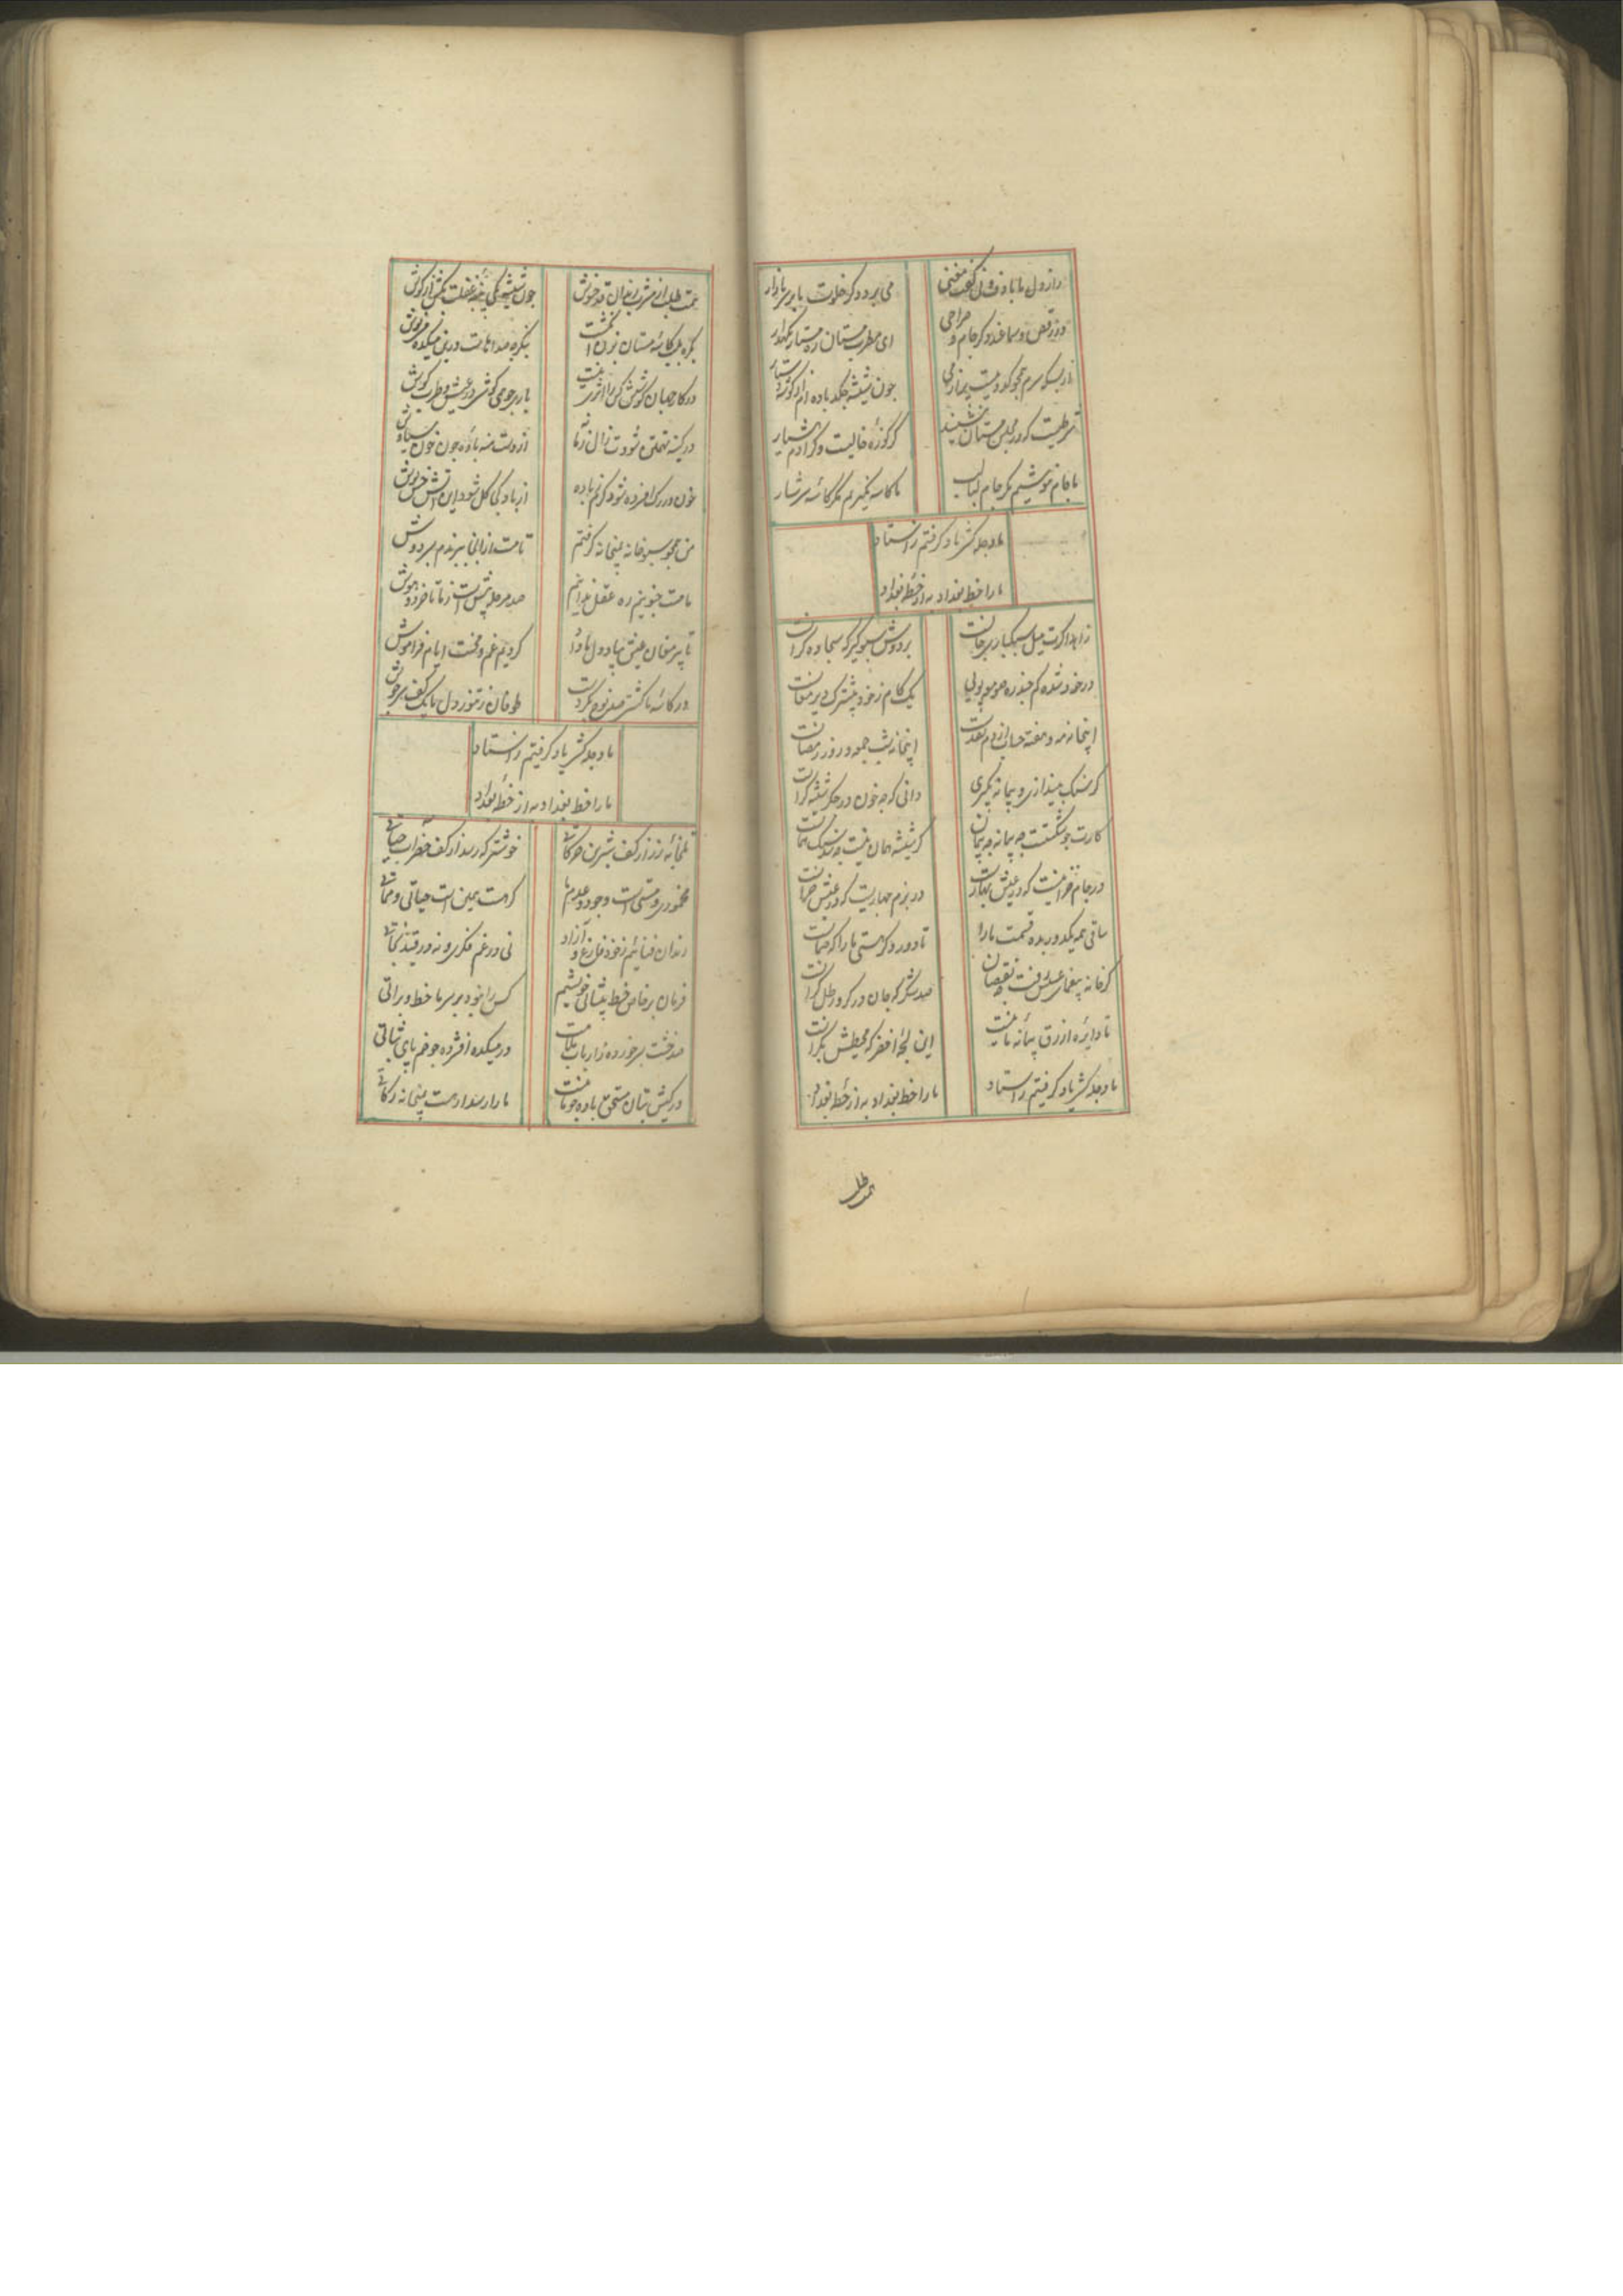 راز دل ما باده
می برد دگر خلوت بابر سر بازار
در رقص و سماعند دگر جام و صراحی
ای مطرب مستان ره مستار نگهدار
سرم همچو کدو نیست
چون شیشه چکد باده ام از گوشه دستار
شرطیست که در مجلس مستان ننشیند
گر کوزه خالیست وگر آدم هشیار
با جام ننوشیم مگر جام لبالب
ما کاسه نگیریم مگر کاسه سرشار
ما دجله کشی یاد گرفتیم ز استاد
ما را خط بغداد به از خطه بغداد
زاهد اگرت میل سبکباری جانست
بردوش سبو گیر که سجاده گرانست
در خود شده گم
یک گام ز خود پیشترک دیر مغانست
اینجا نه مه و هفته حساب از دم نقدست
اینجا نه شب جمعه و روز رمضانست
گر سنگ میندازی و پیمانه نگیری
دانی که چه خون در جگر شیشه گرانست
کارت چو شکستست چه پیمانه چه پیمان
گر شیشه همان نیست چه شد سنگ همانست
در جام خزانیست که در عیش بهارست
در بزم بهاریست که در عیش خزانست
ساقی همه یکدور بده قسمت ما را
تا دور دگر هستی ما را که ضمانست
گر خانه بیغمای عسس رفت چه نقصان
صد شکر که جان در گرو رطل گرانست
تا دایره ازرق پیمانه ما نیست
این لجه اخضر که محیطش بکرانست
ما دجله کشی یاد گرفتیم ز استاد
ما را خط بغداد به از خطه بغداد
همت طلب
همت طلب از مشرب رندان قدح نوش
چون شیشه می پنبه غفلت بکش از گوش
بنگر چه صداهاست درین میکده
در کار جهان کوشش کس را اثری نیست
در کینه تهمتن شودت زال زمانه
از دست منه باده چون خون سیاوش
خون در رگ افسرده شود گر نم باده
از باد کجا گل شود این آتش خس پوش
من همچو سبو خانه به میخانه گرفتم
تا مست از آنجا ببرندم بسر دوش
ما مست جنونیم ره عقل ندانیم
صد مرحله پیش است ز ما تا خرد و هوش
تا پیر مغان عیش بما داد و دل ما را
کردیم غم و محنت ایام فراموش
طوفان ز تنور دل ما یک کف سرجوش
ما دجله کشی یاد گرفتیم ز استاد
ما را خط بغداد به از خطه بغداد
تلخابه رز از کف شیرین حرکاتی
خوشتر که رسد از کف خضر آب حیاتی
مخموری و مستی است وجود و عدم ما
گر هست همین است حیاتی و مماتی
رندان فنائیم ز خود فارغ و آزاد
نی در غم فکری و نه در قید نجاتی
فرمان بر خاص خط پیشانی خویشیم
کس را نبود بر سر ما خط و براتی
صد خشت بسر خورده ز ارباب ملامت
در میکده افشرده چو خم پای ثباتی
در کیش بتان مستحق باده چو ما نیست
ما را رسد ار هست به میخانه زکاتی